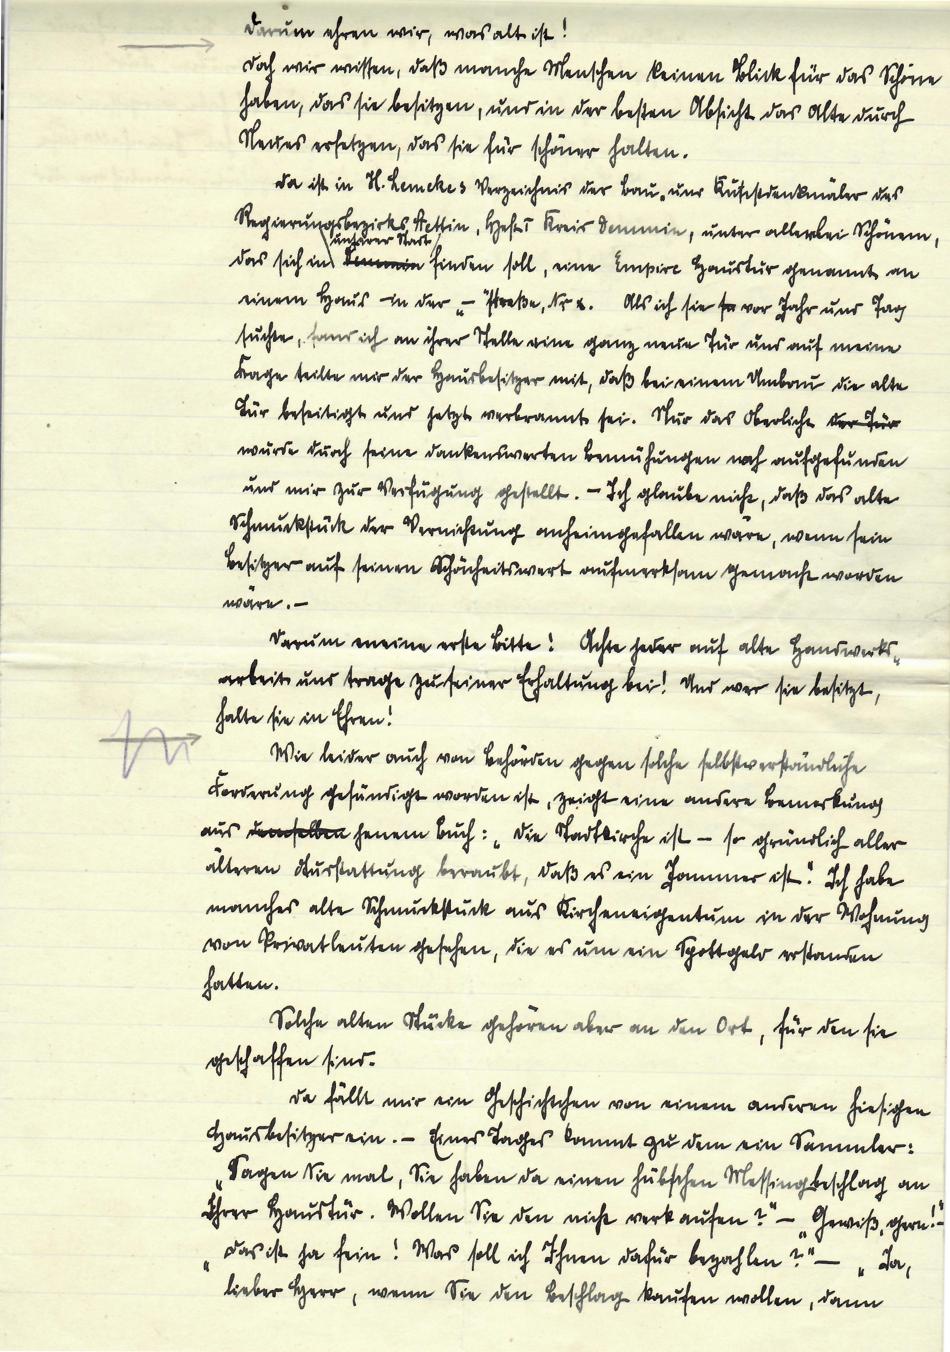 Darum ehren wir, was alt ist!
Doch wir wissen, daß manche Menschen keinen Blick für das Schöne
haben, das sie besitzen, und in der besten Absicht das Alte durch
Neues ersetzen, das sie für schöner halten.
Da ist in H. Lemckes Verzeichnis der Bau- und Kunstdenkmäler des
Regierungsbezirks Stettin, Heft I Kreis Demmin, unter allerlei Schönem,
unserer Stadt
das sich in Demmin finden soll, eine Empire Haustür genannt an
einem Haus in der — "Straße, Nr x. Als ich sie vor Jahr und Tag
suchte, fand ich an ihrer Stelle eine ganz neue Tür und auf meine
Frage teilte mir der Hausbesitzer mit, daß bei einem Umbau die alte
Tür beseitigt und jetzt verbrannt sei. Nur das Oberlicht der Tür
wurde durch seine dankenswerten Bemühungen noch aufgefunden
und mir zur Verfügung gestellt. – Ich glaube nicht, daß das alte
Schmuckstück der Vernichtung anheimgefallen wäre, wenn sein
Besitzer auf seinen Schönheitswert aufmerksam gemacht worden
wäre. –
Darum meine erste Bitte! Achte jeder auf alte Handwerks-
arbeit und trage zu seiner Erhaltung bei! Und wer sie besitzt,
halte sie in Ehren!
Wie leider auch von Behörden gegen solche selbstverständliche
Forderung gesündigt worden ist, zeigt eine andere Bemerkung
aus demselben jenem Buch: „Die Stadtkirche ist – so gründlich aller
älteren Ausstattung beraubt, daß es ein Jammer ist." Ich habe
manches alte Schmuckstück aus Kircheneigentum in der Wohnung
von Privatleuten gesehen, die es um ein Spottgeld erstanden
hatten.
Solche alten Stücke gehören aber an den Ort, für den sie
geschaffen sind.
Da fällt mir ein Geschichtchen von einem anderen hiesigen
Hausbesitzer ein. – Eines Tages kommt zu dem ein Sammler:
„Sagen Sie mal, Sie haben da einen hübschen Messingbeschlag an
Ihrer Haustür. Wollen Sie den nicht verkaufen?" – „Gewiß, gern!" –
„Das ist ja fein! Was soll ich Ihnen dafür bezahlen?" – „Ja,
lieber Herr, wenn Sie den Beschlag kaufen wollen, dann